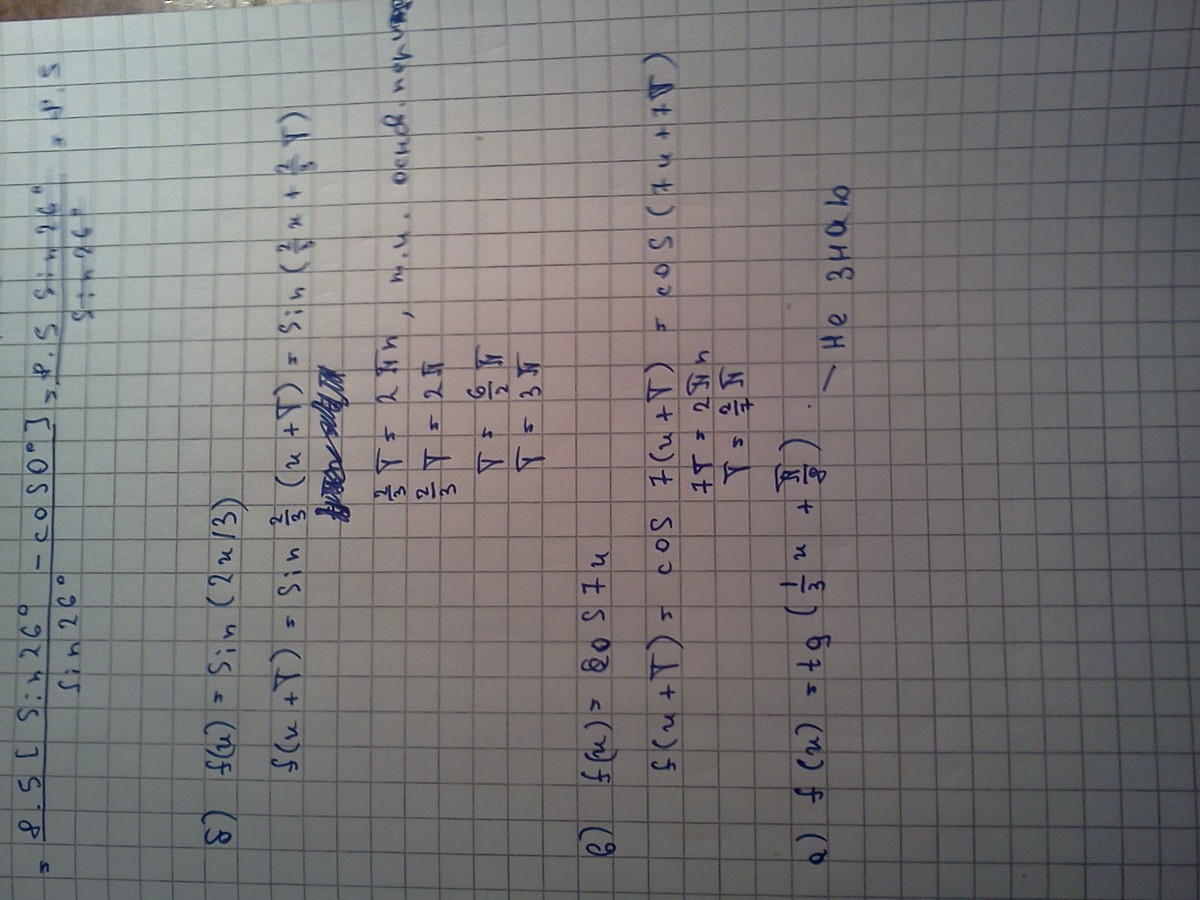 = 8.5 [ sin 26° - cos 0° ] / sin 26° = 8.5 sin 26° / sin 26° = 8.5
б) f(x) = sin (2x/3)
f(x+T) = sin 2/3 (x+T) = sin (2/3 x + 2/3 T)
2/3 T = 2πn, т.к. осн.
2/3 T = 2π
T = 6/2 π
T = 3π
в) f(x) = cos 7x
f(x+T) = cos 7(x+T) = cos (7x+7T)
7T = 2πn
T = 2/7 π
а) f(x) = tg (1/3 x + π/8) - не знаю